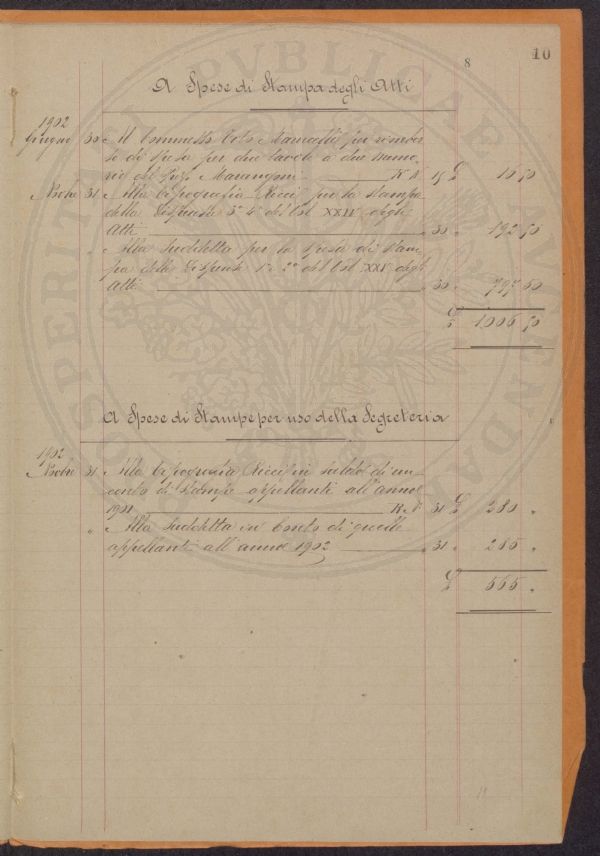 8
10
A Spese di Stampa degli Atti
1902
Giugno 30 Al Commesso per rimbor-
so di spesa per due tavole a due nume-
Marangoni R. N° 15 £ 16 50
Nbre 31 Alla Tipografia Ricci per la stampa
della Dispensa 3ª 4ª del Vol XXIV degli
Atti " 30 " 192 50
" Alla Suddetta per la spesa di stam-
pa delle Dispense 1ª 2ª del Vol XXV degli
Atti " 30 " 797 50
£ 1006 50
A Spese di Stampe per uso della Segreteria
1902
Nbre 31 Alla Tipografia Ricci in saldo di un
conto di stampe appellanti all'anno
1901 R. N° 31 £ 280 "
" Alla Suddetta in Conto di quelle
appellanti all'anno 1902 " 31 " 285 "
£ 565 "
PVBLICAE
PROSPERITATI
AVGENDAE